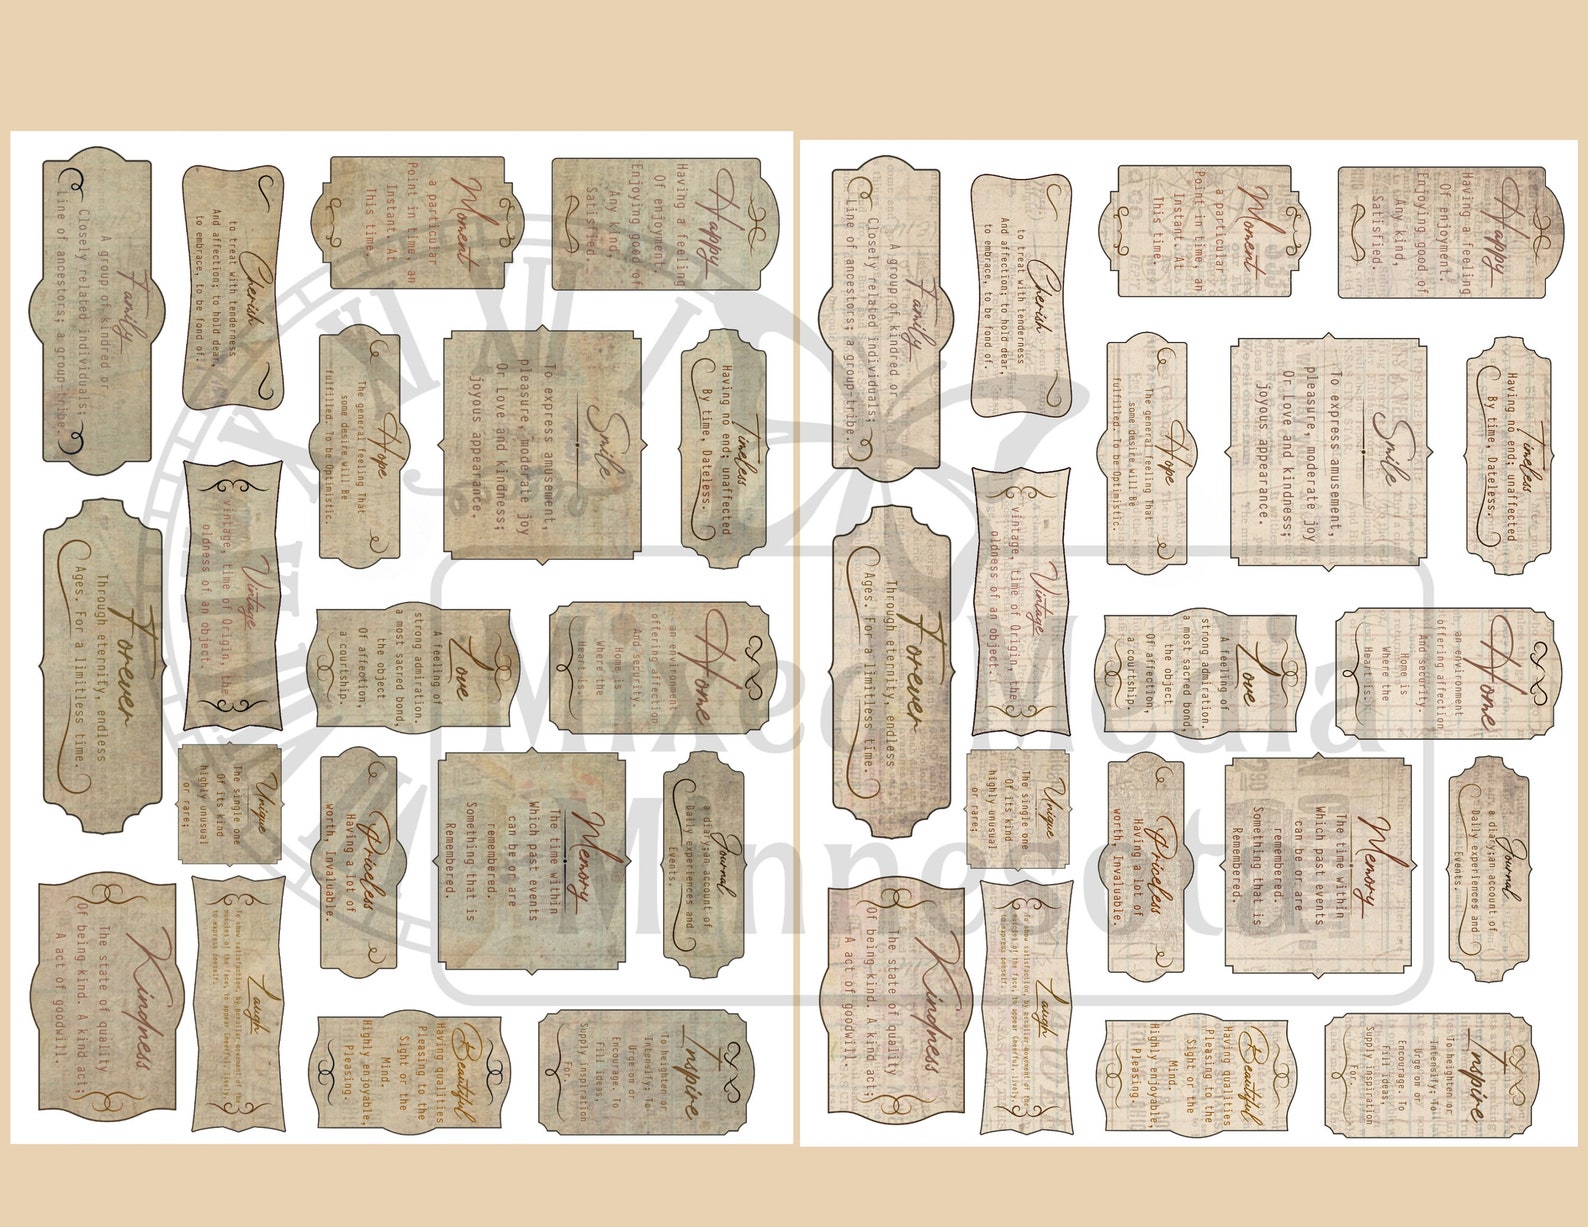 Family
A group of kindred or
Closely related individuals;
Line of ancestors; a group-tribe.
Cherish
to treat with tenderness
And affection; to hold dear,
to embrace, to be fond of.
Moment
a particular
Point in time, an
Instant. At
This time.
Happy
Having a feeling
Of enjoyment.
Enjoying good of
Any kind,
Satisfied.
Hope
The general feeling That
some desire will Be
fulfilled. To be Optimistic.
Smile
To express amusement,
pleasure, moderate joy
Or Love and kindness;
joyous appearance.
Timeless
Having no end; unaffected
By time, Dateless.
Forever
Through eternity, endless
Ages. For a limitless time.
Vintage
vintage, time of Origin, the
oldness of an object.
Love
A feeling of
strong admiration.
a most sacred bond,
the object
Of affection,
a courtship.
Home
an environment
offering affection
And security.
Home is
Where the
Heart is.
Unique
The single one
Of its kind
highly unusual
or rare;
Priceless
Having a lot of
worth, Invaluable.
Memory
The time within
Which past events
can be or are
remembered.
Something that is
Remembered.
Journal
a diary;an account of
Daily experiences and
Events.
Kindness
The state of quality
Of being kind. A kind act;
A act of goodwill.
Laugh
To show satisfaction, by peculiar movement of the
muscles of the face, to appear Cheerful, lively,
to express oneself.
Beautiful
Having qualities
Pleasing to the
Sight or the
Mind.
Highly enjoyable,
Pleasing.
Inspire
To heighten or
Intensify; To
Urge on or
Encourage. To
Fill ideas,
Supply inspiration
For.
Family
A group of kindred or
Closely related individuals;
Line of ancestors; a group-tribe.
Cherish
to treat with tenderness
And affection; to hold dear,
to embrace, to be fond of.
Moment
a particular
Point in time, an
Instant. At
This time.
Happy
Having a feeling
Of enjoyment.
Enjoying good of
Any kind,
Satisfied.
Hope
The general feeling That
some desire will Be
fulfilled. To be Optimistic.
Smile
To express amusement,
pleasure, moderate joy
Or Love and kindness;
joyous appearance.
Timeless
Having no end; unaffected
By time, Dateless.
Forever
Through eternity, endless
Ages. For a limitless time.
Vintage
vintage, time of Origin, the
oldness of an object.
Love
A feeling of
strong admiration.
a most sacred bond,
the object
Of affection,
a courtship.
Home
an environment
offering affection
And security.
Home is
Where the
Heart is.
Unique
The single one
Of its kind
highly unusual
or rare;
Priceless
Having a lot of
worth, Invaluable.
Memory
The time within
Which past events
can be or are
remembered.
Something that is
Remembered.
Journal
a diary;an account of
Daily experiences and
Events.
Kindness
The state of quality
Of being kind. A kind act;
A act of goodwill.
Laugh
To show satisfaction, by peculiar movement of the
muscles of the face, to appear Cheerful, lively,
to express oneself.
Beautiful
Having qualities
Pleasing to the
Sight or the
Mind.
Highly enjoyable,
Pleasing.
Inspire
To heighten or
Intensify; To
Urge on or
Encourage. To
Fill ideas,
Supply inspiration
For.
Mixed Media
Minnesota